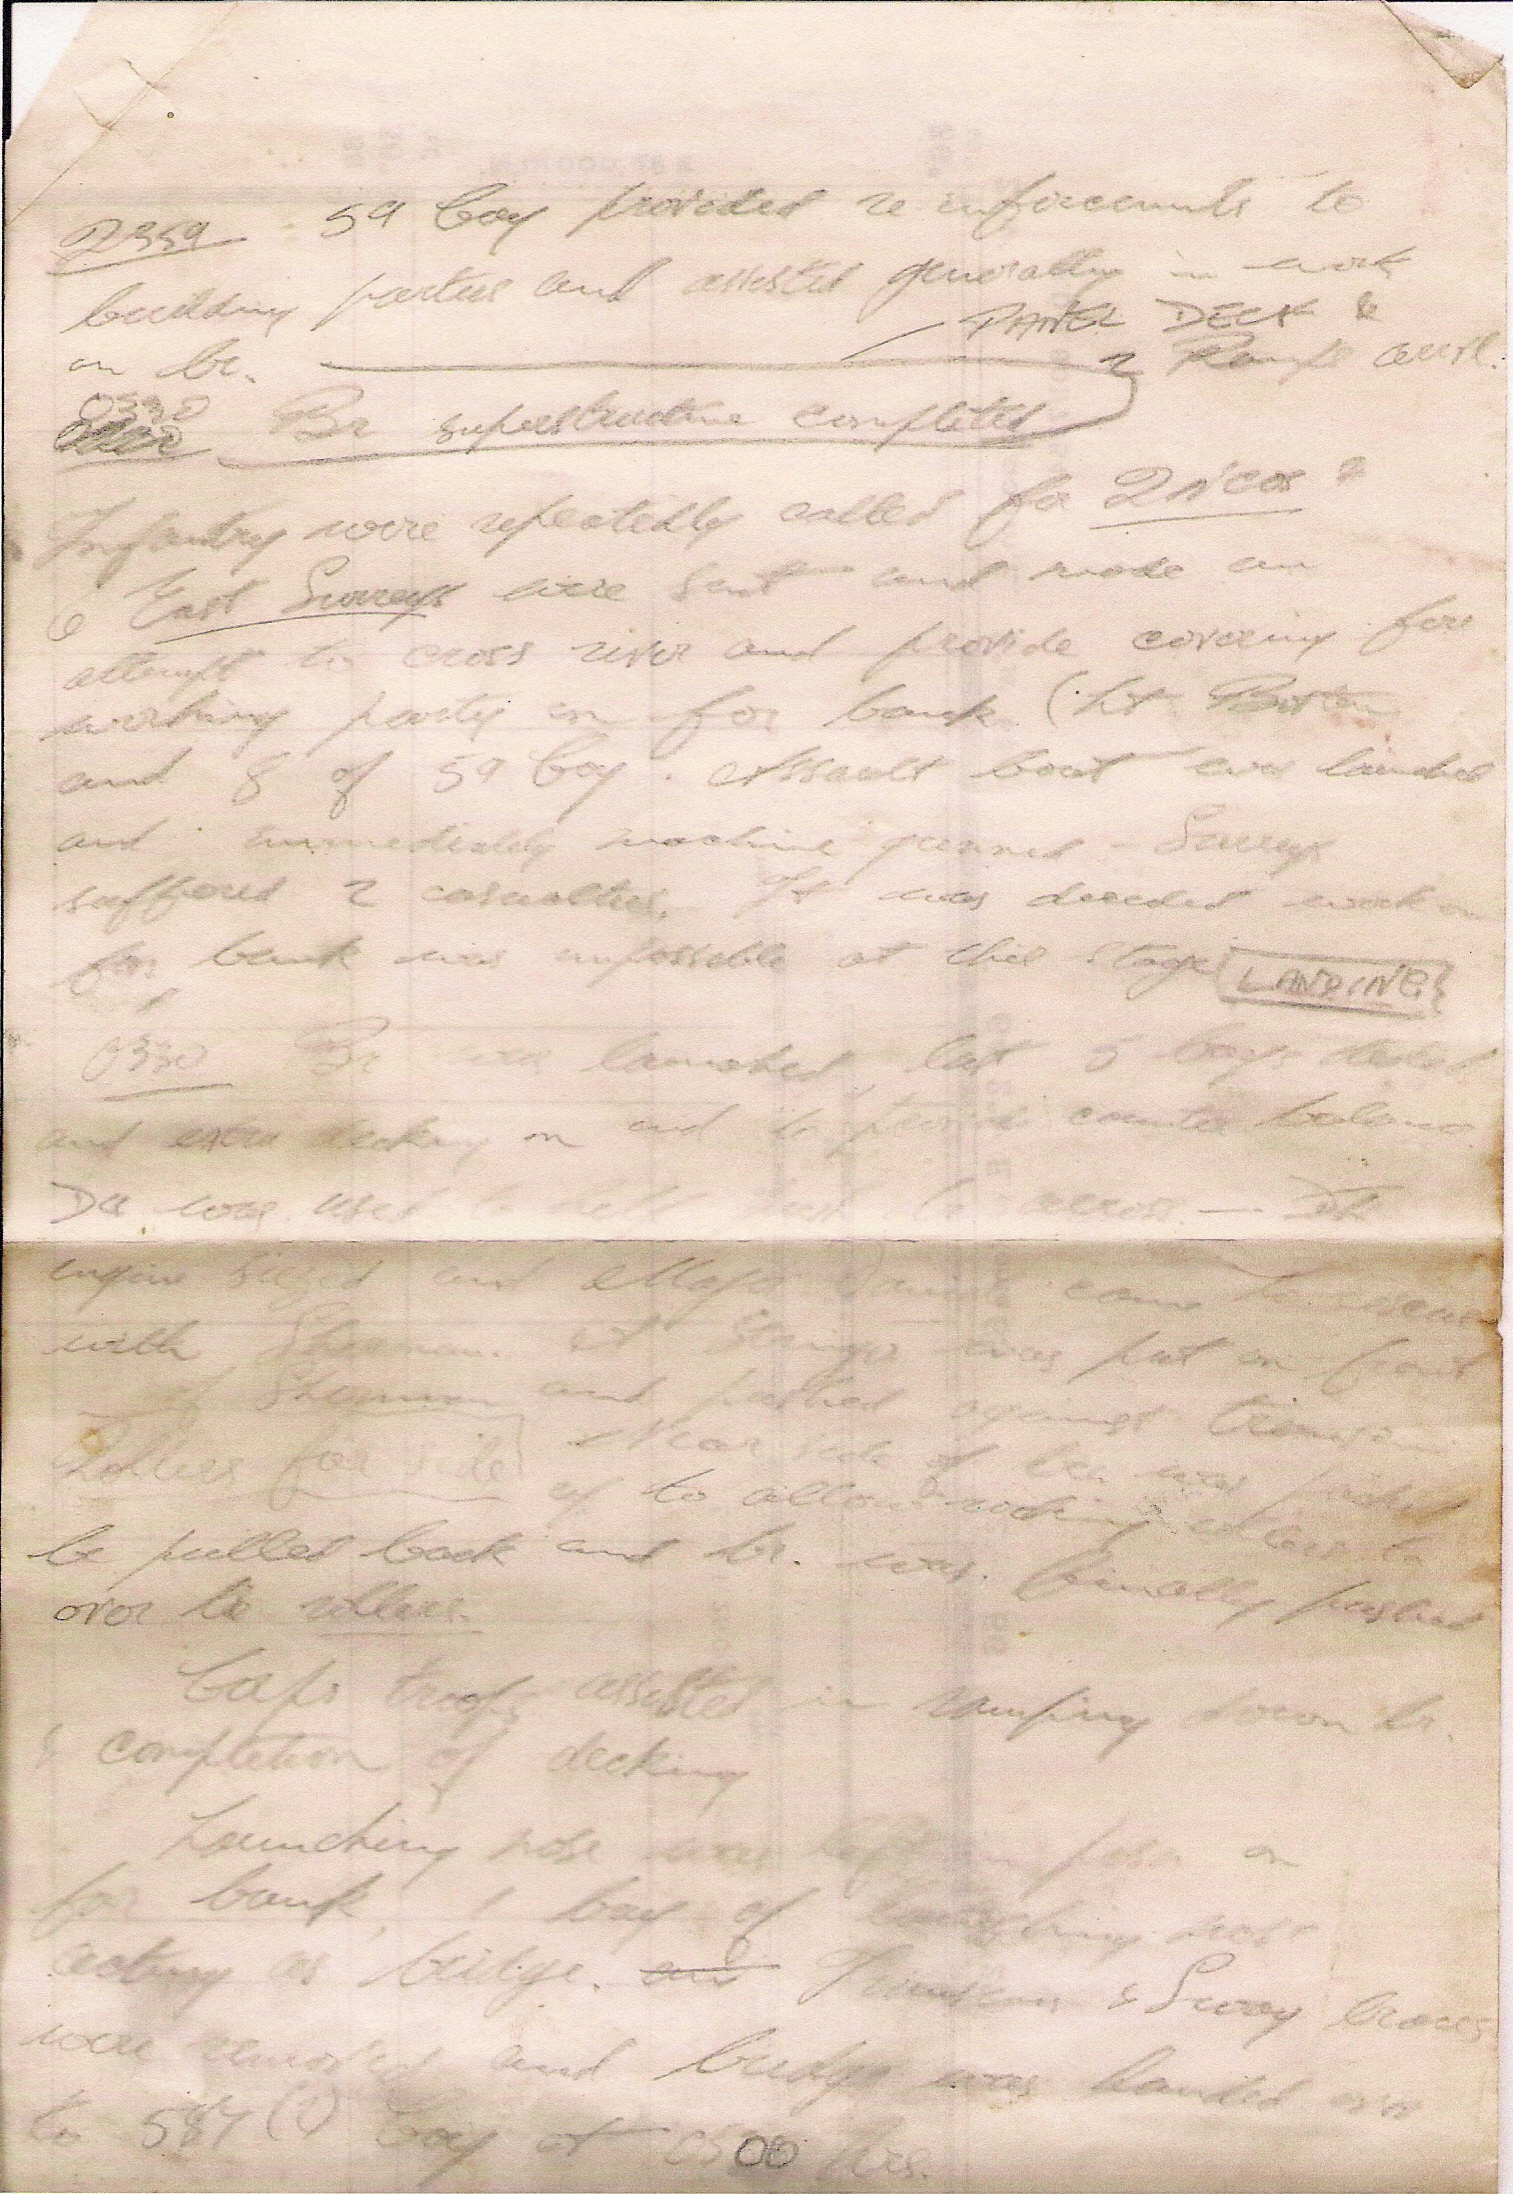 2359 59 Coy provided reinforcements to
building parties and assisted generally in work
on br. PANEL DECK &
2 Ramps const.
0330 Br superstructure completed
Infantry were repeatedly called for
6 East Surreys were sent and made an
attempt to cross river and provide covering for
working party on far bank. (Lt Boston
and 8 of 59 Coy. Assault boat was launched
and immediately machine gunned - Surreys
suffered 2 casualties. It was decided work on
far bank was impossible at this stage LANDING
0330 Br was launched, last 5 bays decked
and extra decking on end to provide counter balance.
were used to help push br across —
engine seized and Major Daniels came to rescue
with Sherman. A Stringer was put on front
of Sherman and pushed against transom
Rollers far side Near side of br. was jacked
up to allow rocking rollers to
be pulled back and br. was finally pushed
over to rollers.
troops assisted in ramping down br.
& completion of decking
Launching nose was left in posn on
far bank, 1 bay of launching nose
acting as bridge. and Transoms & Sway braces
were removed and bridge was handed over
to 587 Coy at 0500 hrs.